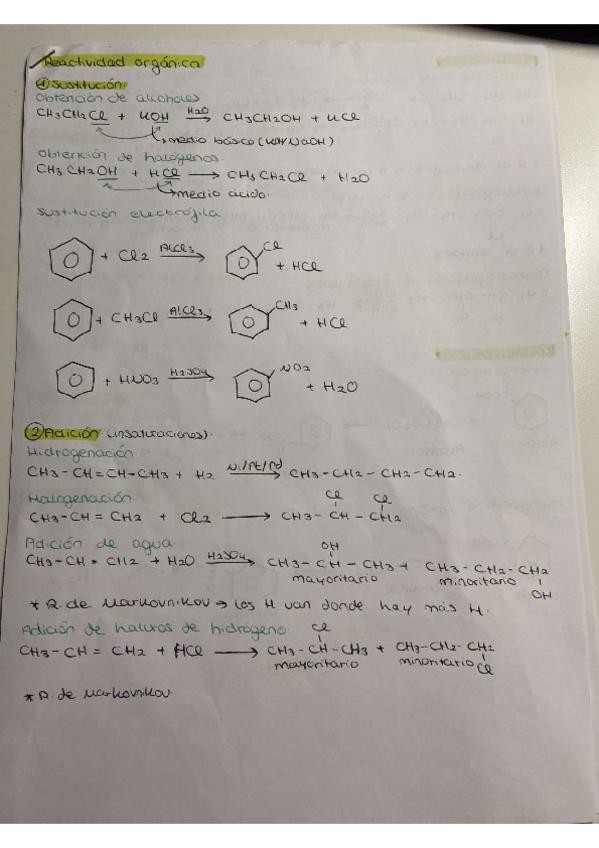 Reactividad orgánica
① Sustitución
Obtención de alcoholes
CH3CH2Cl + KOH H2O → CH3CH2OH + KCl
→ medio básico (KOH/NaOH)
Obtención de halógenos.
CH3CH2OH + HCl → CH3CH2Cl + H2O
→ medio acido.
Sustitución electrófila
+ Cl2 AlCl3 → Cl + HCl
+ CH3Cl AlCl3 → CH3 + HCl
+ HNO3 H2SO4 → NO2 + H2O
② Adición (insaturaciones).
Hidrogenación
CH3-CH=CH-CH3 + H2 Ni/Pt/Pd → CH3-CH2-CH2-CH2.
Halogenación
Cl Cl
CH3-CH=CH2 + Cl2 → CH3-CH-CH2
Adición de agua
OH
CH3-CH=CH2 + H2O H2SO4 → CH3-CH-CH3 + CH3-CH2-CH2
mayoritario minoritario OH
* R. de Markovnikov → los H van donde hay más H.
Adición de haluros de hidrógeno
Cl
CH3-CH=CH2 + HCl → CH3-CH-CH3 + CH3-CH2-CH2
mayoritario minoritario Cl
* R. de Markovnikov